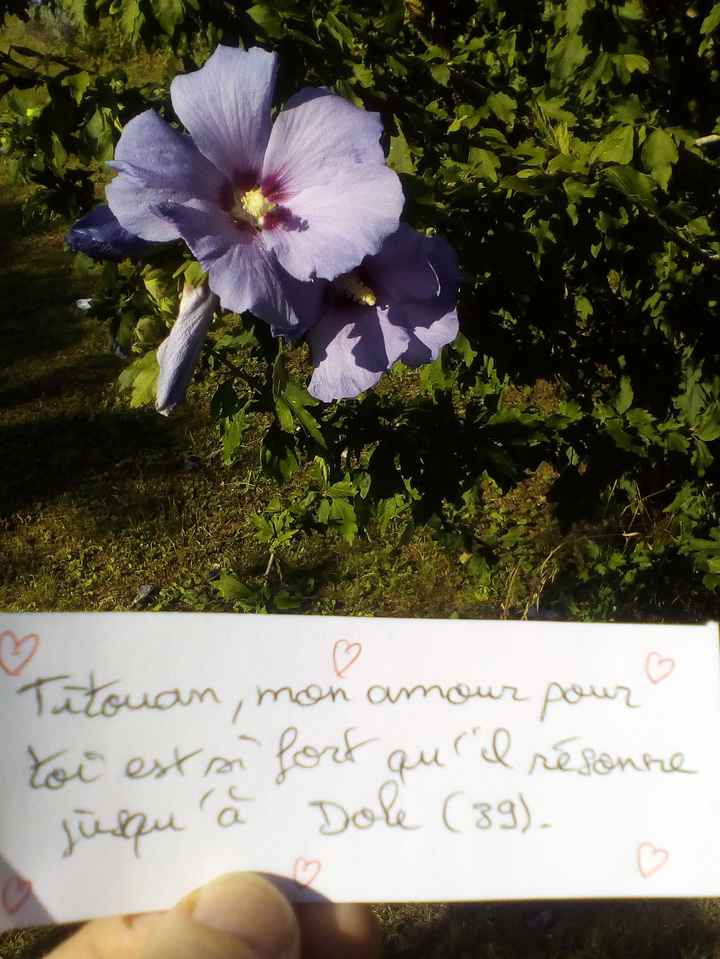 Titouan, mon amour pour
toi est si fort qu'il résonne
jusqu'à Dole (39).